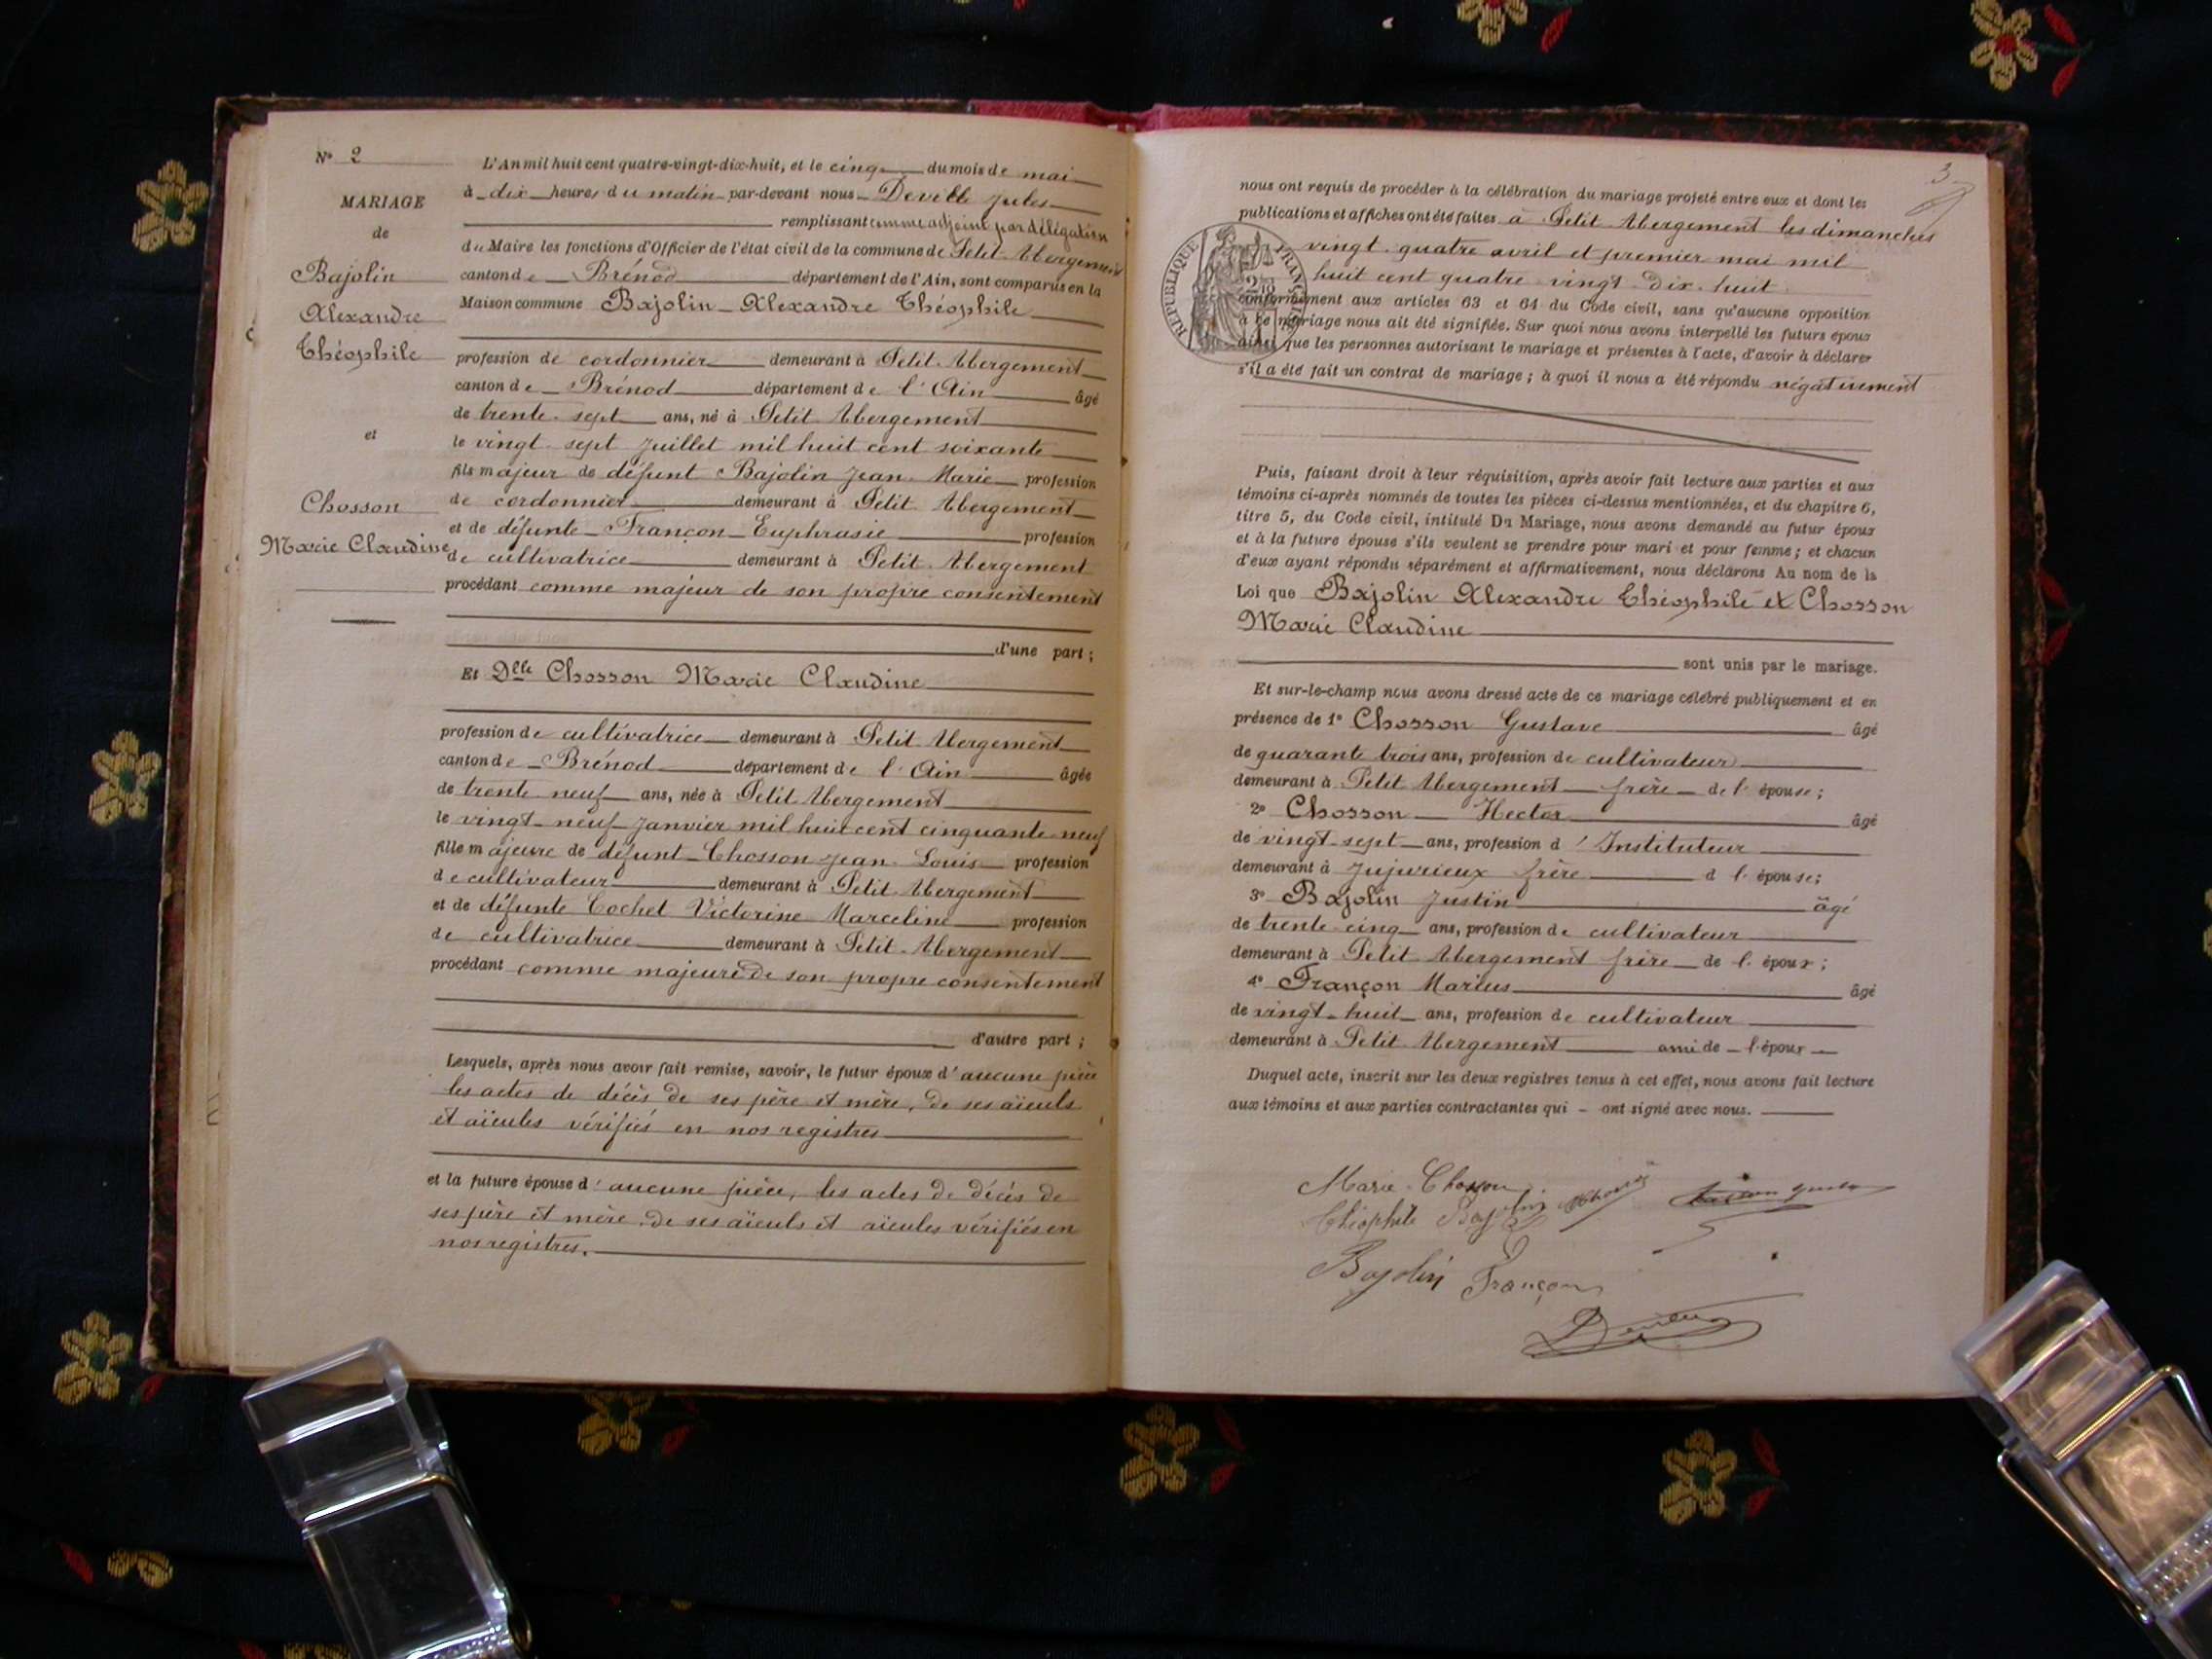 N° 2
MARIAGE
de
Bajolin
Alexandre
Théophile
et
Chosson
Marie Claudine
L'An mil huit cent quatre-vingt-dix-huit, et le cinq du mois de mai
à dix heures du matin par-devant nous Deville Jules
remplissant comme adjoint par délégation
du Maire les fonctions d'Officier de l'état civil de la commune de Petit Abergement
canton de Brénod département de l'Ain, sont comparus en la
Maison commune Bajolin Alexandre Théophile
profession de cordonnier demeurant à Petit Abergement
canton de Brénod département de l'Ain âgé
de trente sept ans, né à Petit Abergement
le vingt sept Juillet mil huit cent soixante
fils majeur de défunt Bajolin Jean Marie profession
de cordonnier demeurant à Petit Abergement
et de défunte Françon Euphrasie profession
de cultivatrice demeurant à Petit Abergement
procédant comme majeur de son propre consentement
d'une part;
Et Dlle Chosson Marie Claudine
profession de cultivatrice demeurant à Petit Abergement
canton de Brénod département de l'Ain âgée
de trente neuf ans, née à Petit Abergement
le vingt neuf Janvier mil huit cent cinquante neuf
fille majeure de défunt Chosson Jean Louis profession
de cultivateur demeurant à Petit Abergement
et de défunte Cochet Victorine Marceline profession
de cultivatrice demeurant à Petit Abergement
procédant comme majeure de son propre consentement
d'autre part;
Lesquels, après nous avoir fait remise, savoir, le futur époux d'aucune pièce
les actes de décès de ses père et mère, de ses aïeuls
et aïeules vérifiés en nos registres
et la future épouse d'aucune pièce, les actes de décès de
ses père et mère de ses aïeuls et aïeules vérifiés en
nos registres.
3
nous ont requis de procéder à la célébration du mariage projeté entre eux et dont les
publications et affiches ont été faites à Petit Abergement les dimanches
vingt quatre avril et premier mai mil
huit cent quatre vingt dix huit
REPUBLIQUE FRANÇAISE
conformément aux articles 63 et 64 du Code civil, sans qu'aucune opposition
à ce mariage nous ait été signifiée. Sur quoi nous avons interpellé les futurs époux
ainsi que les personnes autorisant le mariage et présentes à l'acte, d'avoir à déclarer
s'il a été fait un contrat de mariage; à quoi il nous a été répondu négativement
Puis, faisant droit à leur réquisition, après avoir fait lecture aux parties et aux
témoins ci-après nommés de toutes les pièces ci-dessus mentionnées, et du chapitre 6,
titre 5, du Code civil, intitulé Du Mariage, nous avons demandé au futur époux
et à la future épouse s'ils veulent se prendre pour mari et pour femme; et chacun
d'eux ayant répondu séparément et affirmativement, nous déclarons Au nom de la
Loi que Bajolin Alexandre Théophile et Chosson
Marie Claudine
sont unis par le mariage.
Et sur-le-champ nous avons dressé acte de ce mariage célébré publiquement et en
présence de 1° Chosson Gustave âgé
de quarante trois ans, profession de cultivateur
demeurant à Petit Abergement frère de l'épouse;
2° Chosson Hector âgé
de vingt sept ans, profession d'Instituteur
demeurant à Jujurieux frère d l'épouse;
3° Bajolin Justin âgé
de trente cinq ans, profession de cultivateur
demeurant à Petit Abergement frère de l'époux;
4° Françon Marius âgé
de vingt huit ans, profession de cultivateur
demeurant à Petit Abergement ami de l'époux
Duquel acte, inscrit sur les deux registres tenus à cet effet, nous avons fait lecture
aux témoins et aux parties contractantes qui - ont signé avec nous.
Marie Chosson
Théophile Bajolin
Bajolin Françon